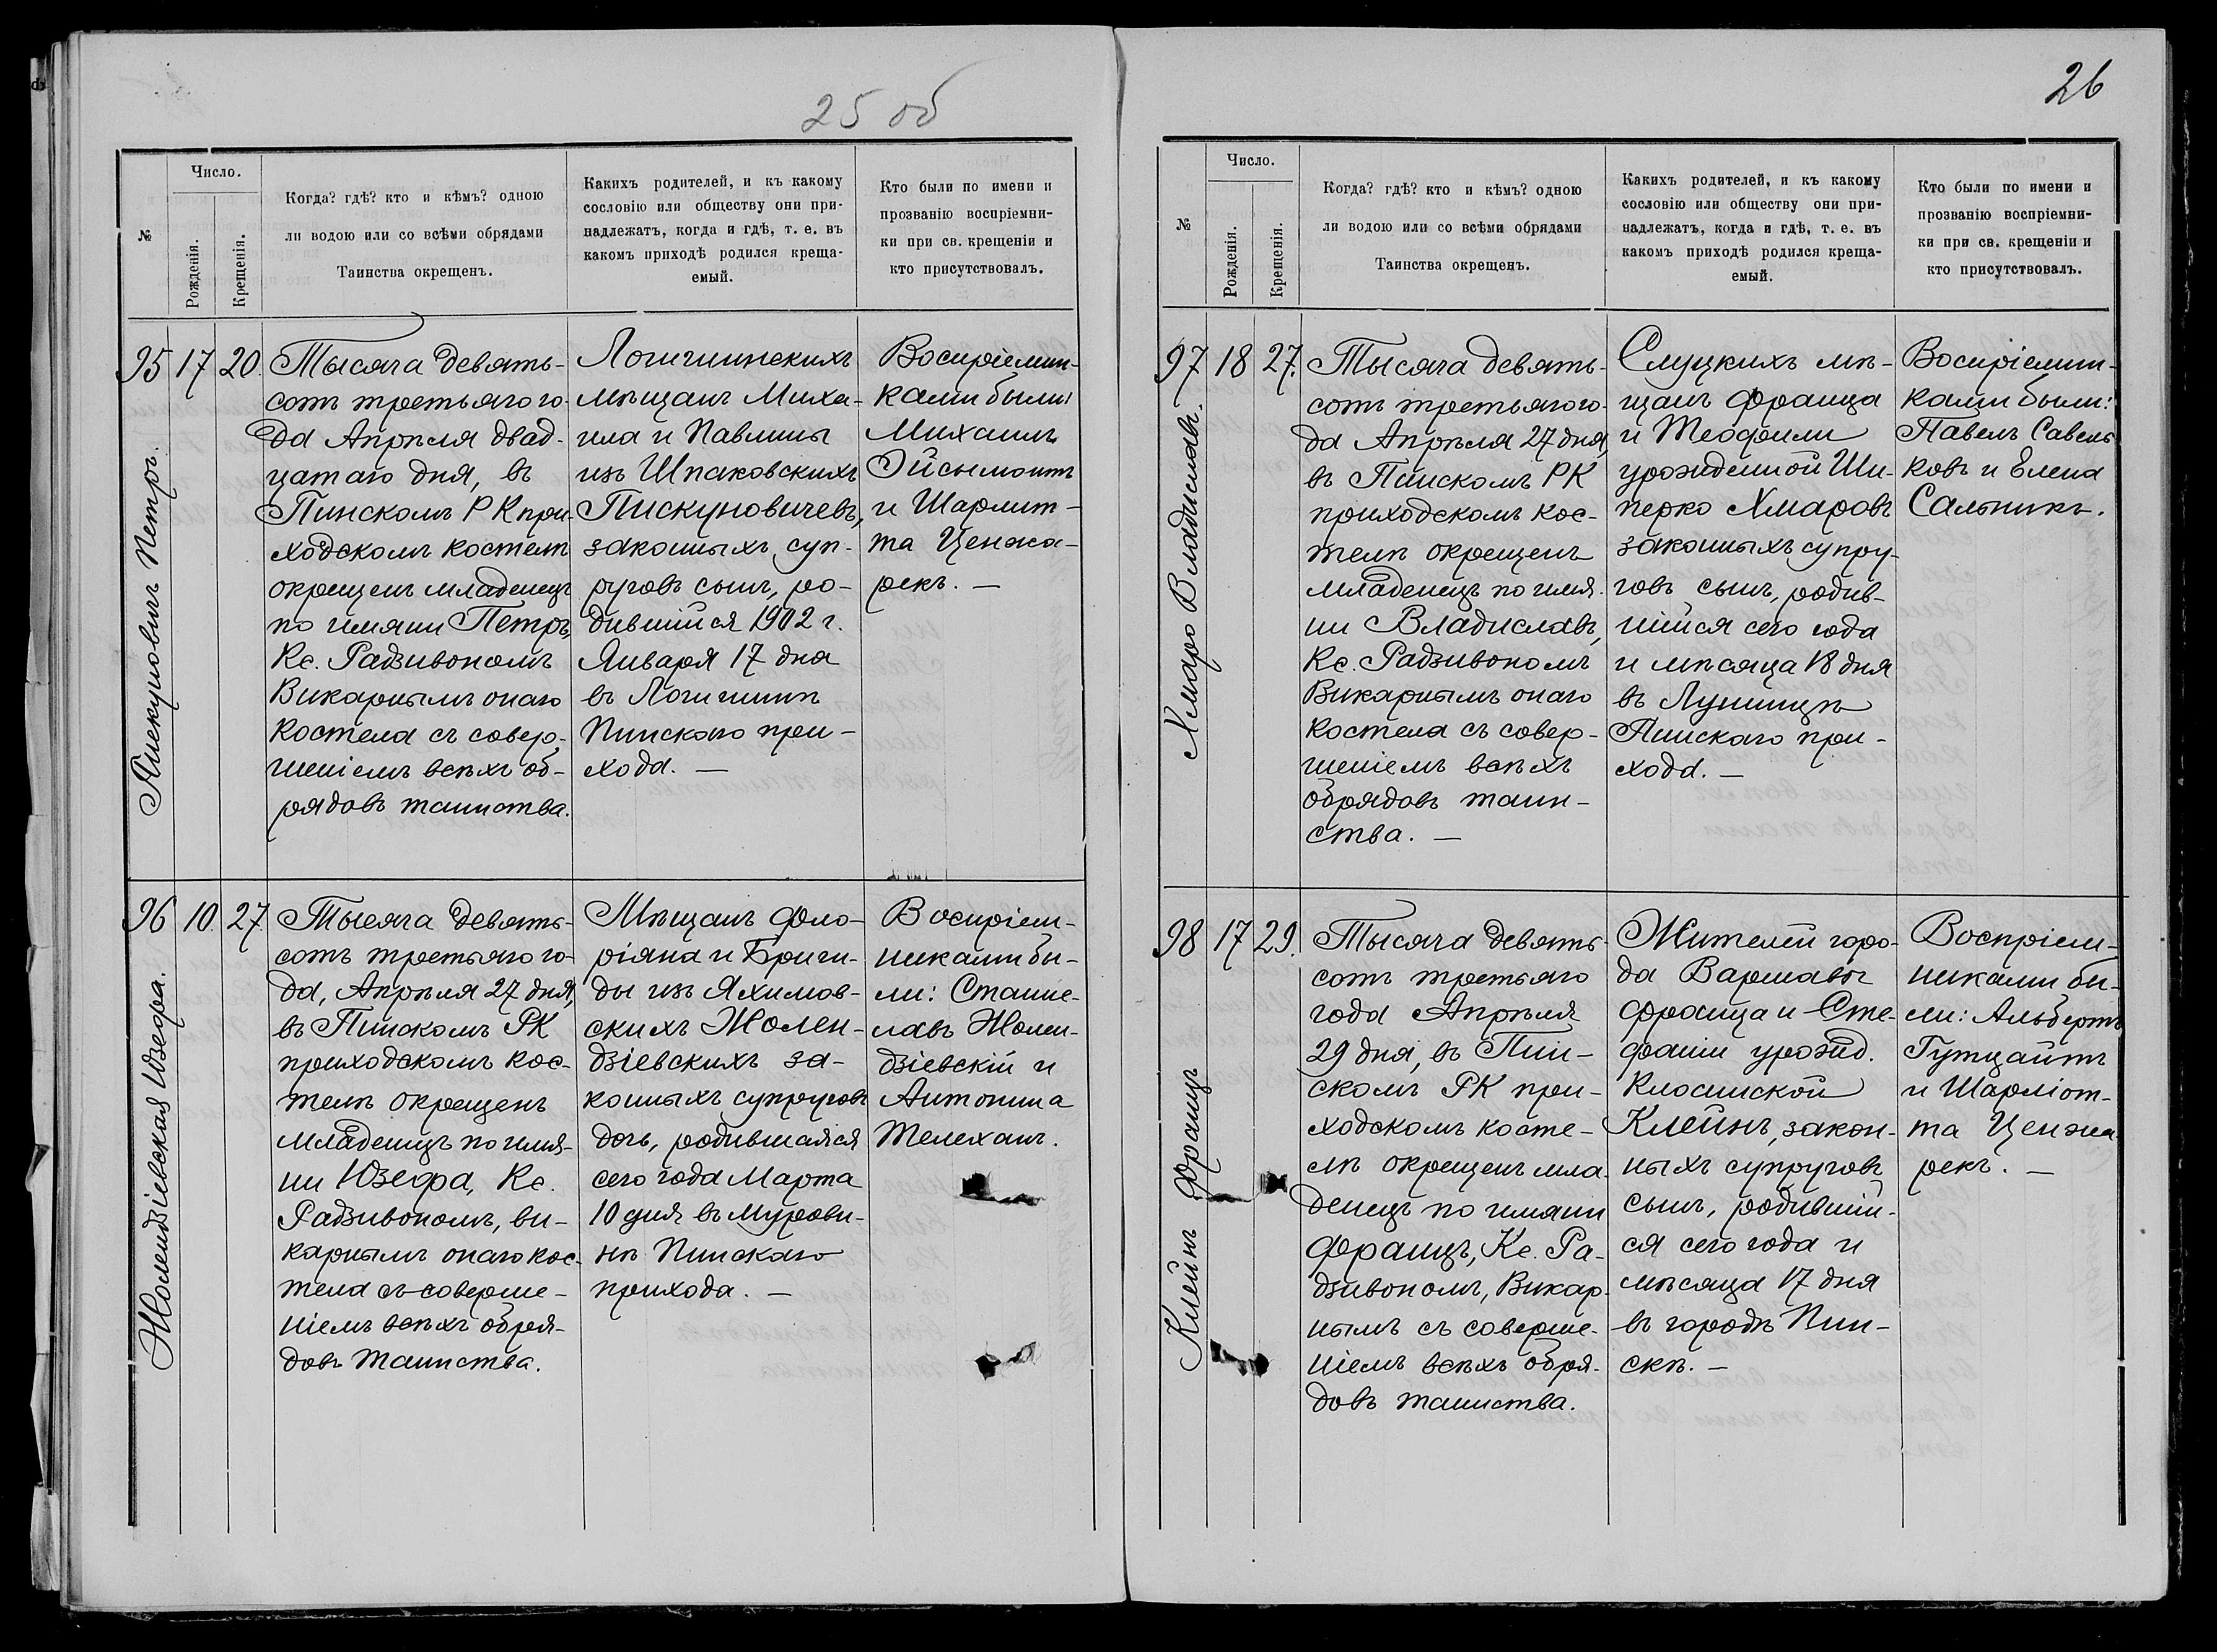 25 об
№
Число.
Рожденія.
Крещенія.
Когда? гдѣ? кто и кѣмъ? одною
ли водою или со всѣми обрядами
Таинства окрещенъ.
Какихъ родителей, и къ какому
сословію или обществу они при-
надлежатъ, когда и гдѣ, т. е. въ
какомъ приходѣ родился креща-
емый.
Кто были по имени и
прозванію воспріемни-
ки при св. крещеніи и
кто присутствовалъ.
95 17 20.
Пискуновичъ Петръ.
Тысяча девять-
сотъ третьяго го-
да Апрѣля двад-
цатаго дня, въ
Пинскомъ РК при-
ходскомъ костелѣ
окрещенъ младенецъ
по имяни Петръ,
Кс. Радзивономъ
Викарнымъ онаго
костела съ совер-
шеніемъ всѣхъ об-
рядовъ таинства.
Логишинскихъ
мѣщанъ Миха-
ила и Павлины
изъ Шпаковскихъ
Пискуновичевъ,
законныхъ суп-
руговъ сынъ, ро-
дившійся 1902 г.
Января 17 дня
въ Логишинѣ
Пинскаго при-
хода. —
Воспріемни-
ками были
Михаилъ
Эйсымонтъ
и Шарлит-
та Ценжа-
рекъ. —
96 10. 27.
Жолендзіевская Юзефа.
Тысяча девять-
сотъ третьяго го-
да, Апрѣля 27 дня,
въ Пинскомъ РК
приходскомъ кос-
телѣ окрещенъ
младенецъ по имя-
ни Юзефа, Кс.
Радзивономъ, ви-
карнымъ онаго кос-
тела съ соверше-
ніемъ всѣхъ обря-
довъ таинства.
Мѣщанъ Фло-
ріяна и Бриги-
ды изъ Яхимов-
скихъ Жолен-
дзіевскихъ за-
конныхъ супруговъ
дочь, родившаяся
сего года Марта
10 дня въ Мурови-
нѣ Пинскаго
прихода. —
Воспріем-
никами бы-
ли: Станис-
лавъ Жолен-
дзіевскій и
Антонина
Телеханъ.
26
№
Число.
Рожденія.
Крещенія.
Когда? гдѣ? кто и кѣмъ? одною
ли водою или со всѣми обрядами
Таинства окрещенъ.
Какихъ родителей, и къ какому
сословію или обществу они при-
надлежатъ, когда и гдѣ, т. е. въ
какомъ приходѣ родился креща-
емый.
Кто были по имени и
прозванію воспріемни-
ки при св. крещеніи и
кто присутствовалъ.
97 18 27.
Хмаро Владиславъ.
Тысяча девять-
сотъ третьяго го-
да Апрѣля 27 дня,
въ Пинскомъ РК
приходскомъ кос-
телѣ окрещенъ
младенецъ по имя-
ни Владиславъ,
Кс. Радзивономъ
Викарнымъ онаго
костела съ совер-
шеніемъ всѣхъ
обрядовъ таин-
ства. —
Слуцкихъ мѣ-
щанъ Франца
и Теофили
урожденной Ши-
перко Хмаровъ
законныхъ супру-
говъ сынъ, родив-
шійся сего года
и мѣсяца 18 дня
въ Лунинцѣ
Пинскаго при-
хода. —
Воспріемни-
ками были:
Павелъ Савель-
ковъ и Елена
Сальникъ.
98 17 29.
Клейнъ Францъ
Тысяча девять-
сотъ третьяго
года Апрѣля
29 дня, въ Пин-
скомъ РК при-
ходскомъ косте-
лѣ окрещенъ мла-
денецъ по имяни
Францъ, Кс. Ра-
дзивономъ, Викар-
нымъ съ соверше-
ніемъ всѣхъ обря-
довъ таинства.
Жителей горо-
да Варшавы
Франца и Сте-
фаніи урожд.
Клосинской
Клейнъ, закон-
ныхъ супруговъ
сынъ, родившій-
ся сего года и
мѣсяца 17 дня
въ городѣ Пин-
скѣ. —
Воспріем-
никами бы-
ли: Альбертъ
Гутцайтъ
и Шарліот-
та Ценжа-
рекъ. —